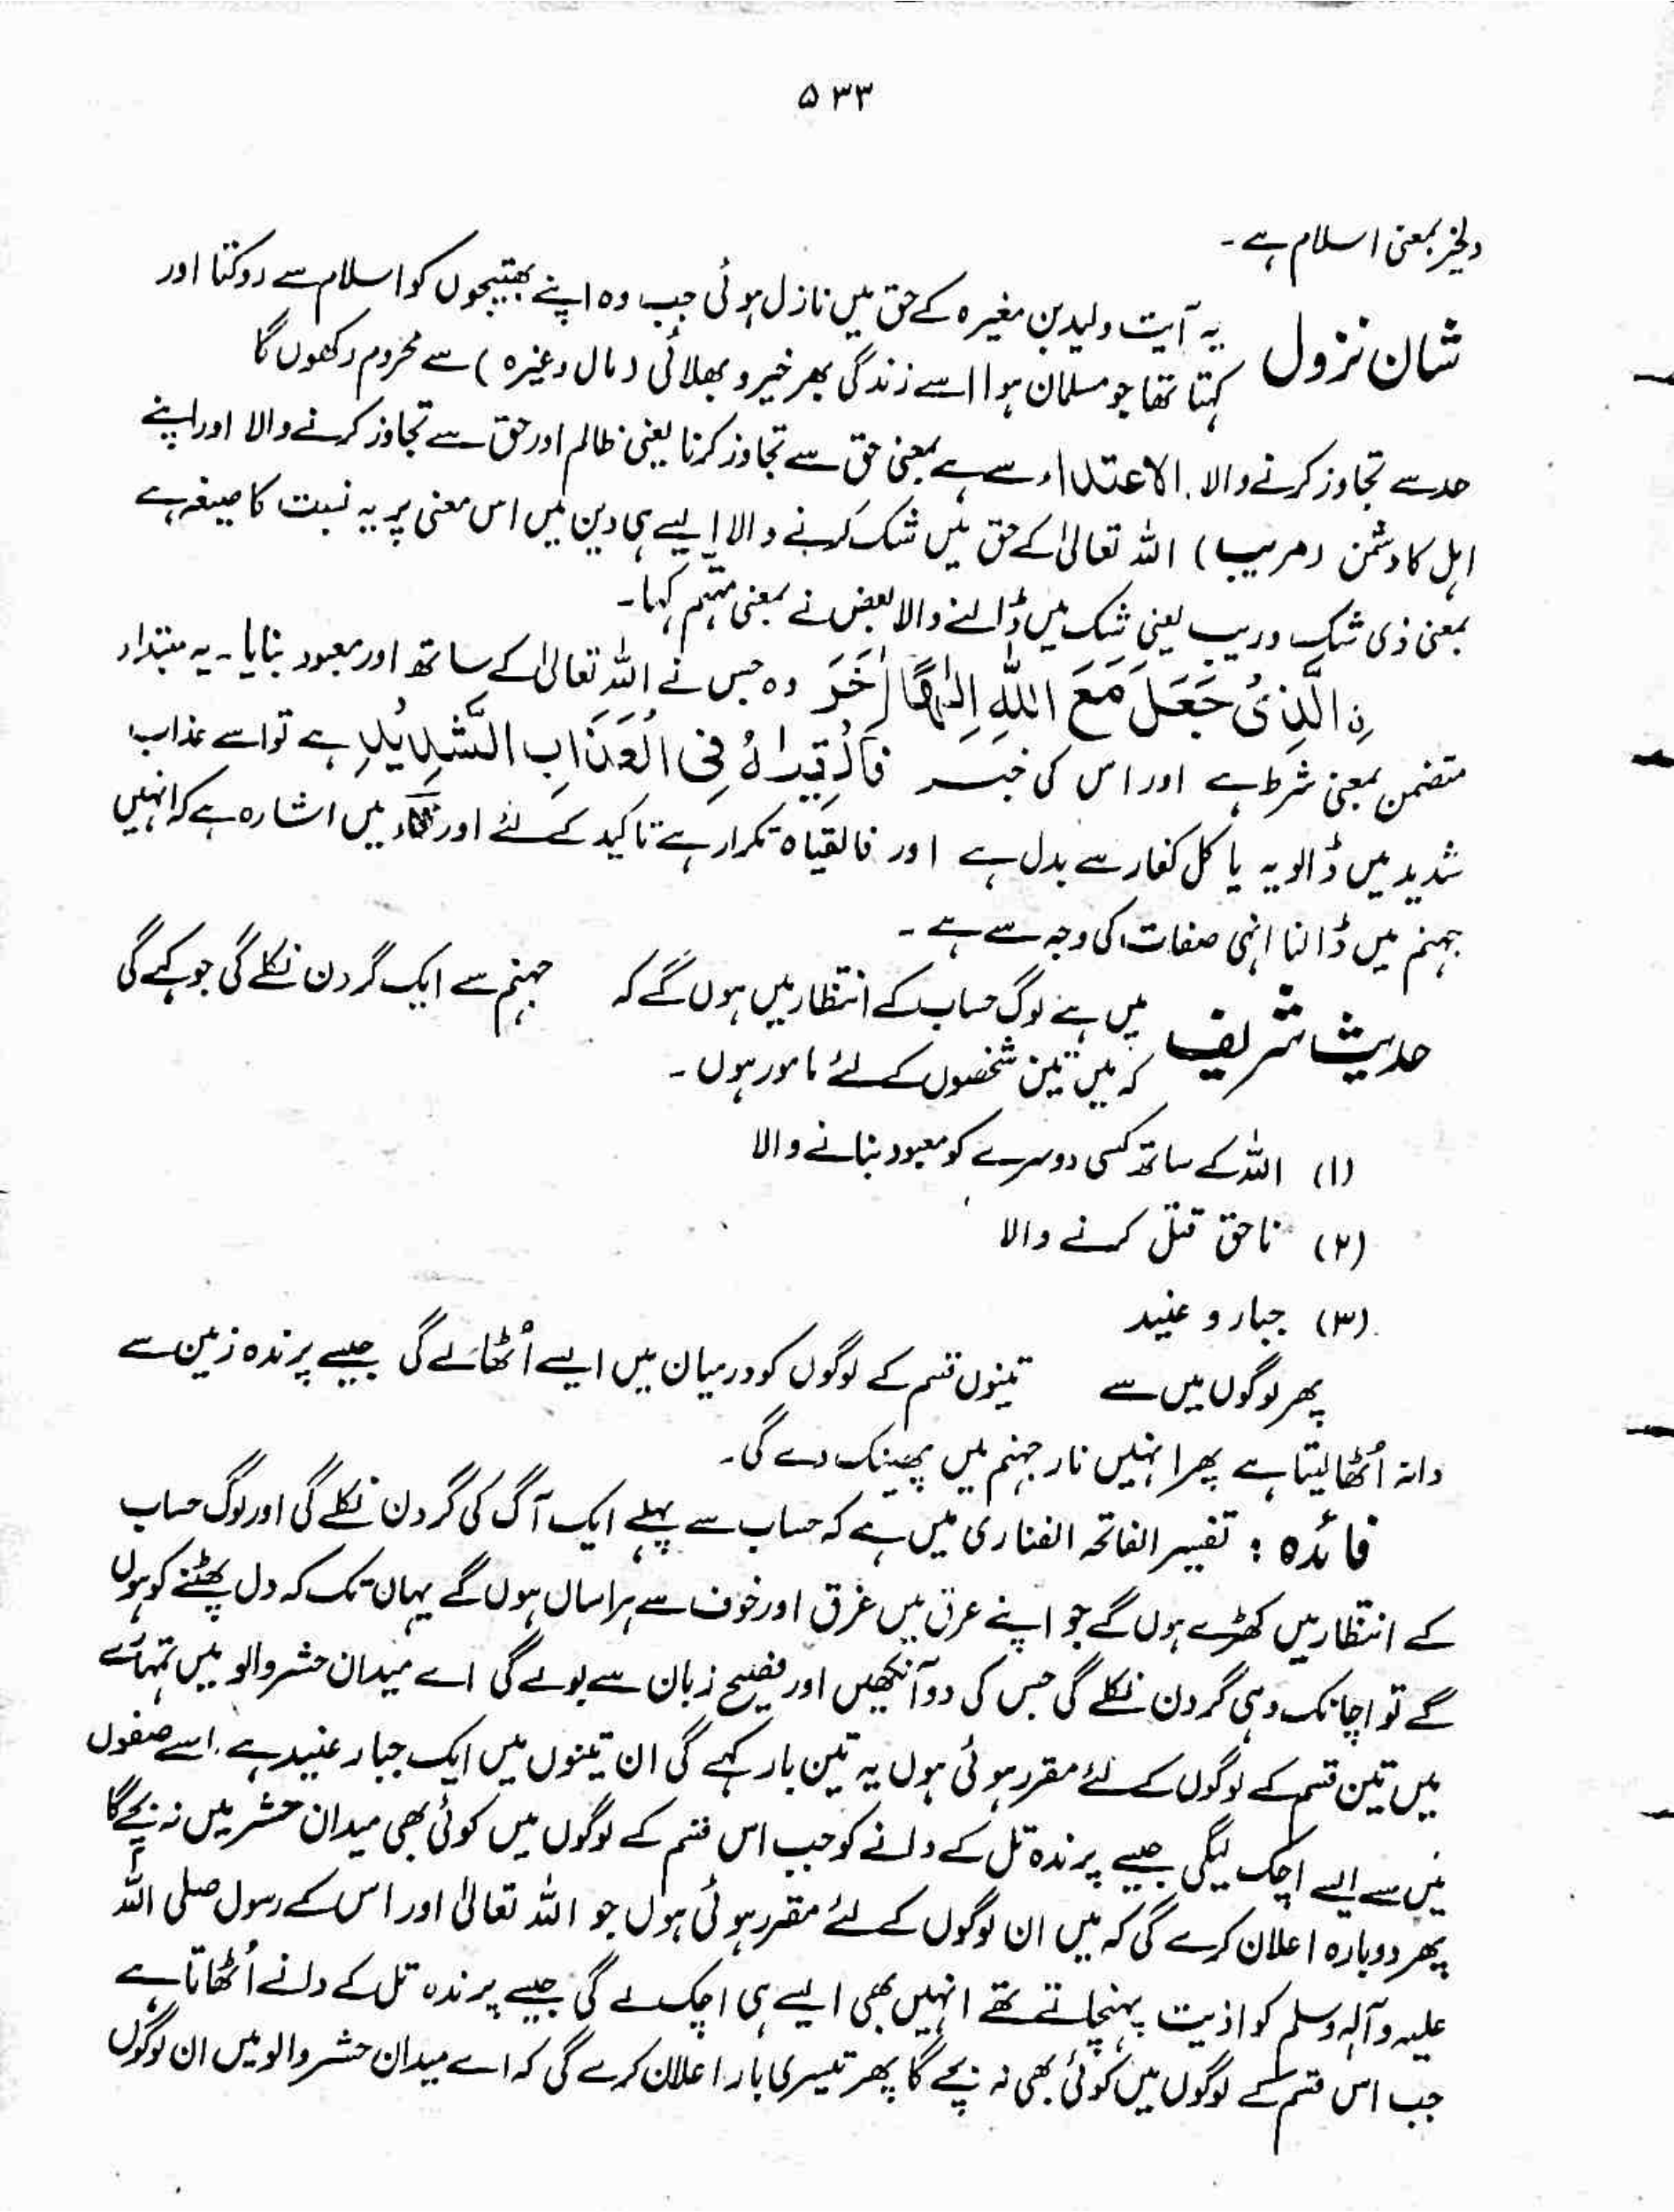 ۵۳۳
دلخیر بمعنی اسلام ہے ۔
شان نزول یہ آیت ولید بن مغیرہ کے حق میں نازل ہوئی جب وہ اپنے بھتیجوں کو اسلام سے روکتا اور
کہتا تھا جو مسلمان ہوا اسے زندگی بھر خیر و بھلائی (مال وغیرہ) سے محروم رکھوں گا
حد سے تجاوز کرنے والا ۔ الاعتداء سے ہے بمعنی حق سے تجاوز کرنا یعنی ظالم اور حق سے تجاوز کرنے والا اور اپنے
اہل کا دشمن (مریب) اللہ تعالیٰ کے حق میں شک کرنے والا ایسے ہی دین میں اس معنی پر یہ نسبت کا صیغہ ہے
بمعنی ذی شک و ریب یعنی شک میں ڈالنے والا بعض نے بمعنی متہم کہا ۔
نِ الَّذِیْ جَعَلَ مَعَ اللّٰہِ اِلٰہًا اٰخَرَ وہ جس نے اللہ تعالیٰ کے ساتھ اور معبود بنایا ۔ یہ مبتدار
متضمن بمعنی شرط ہے اور اس کی خبر فَاَلْقِیٰاہُ فِی الْعَذَابِ الشَّدِیْدِ ہے تو اسے عذاب
شدید میں ڈالو یہ یا کل کفار سے بدل ہے اور فالقیاہ تکرار ہے تاکید کے لئے اور میں اشارہ ہے کہ انہیں
جہنم میں ڈالنا انہی صفات کی وجہ سے ہے ۔
حدیث شریف میں ہے لوگ حساب کے انتظار میں ہوں گے کہ جہنم سے ایک گردن نکلے گی جو کہے گی
کہ میں تین شخصوں کے لئے مامور ہوں ۔
(۱) اللہ کے ساتھ کسی دوسرے کو معبود بنانے والا
(۲) ناحق قتل کرنے والا
(۳) جبار و عنید
پھر لوگوں میں سے تینوں قسم کے لوگوں کو درمیان میں ایسے اُٹھالے گی جیسے پرندہ زمین سے
دانہ اُٹھا لیتا ہے پھر انہیں نار جہنم میں پھینک دے گی ۔
فائدہ : تفسیر الفاتحہ الفناری میں ہے کہ حساب سے پہلے ایک آگ کی گردن نکلے گی اور لوگ حساب
کے انتظار میں کھڑے ہوں گے جو اپنے عرق میں غرق اور خوف سے ہراساں ہوں گے یہاں تک کہ دل پھٹنے کو ہوں
گے تو اچانک وہی گردن نکلے گی جس کی دو آنکھیں اور فصیح زبان سے بولے گی اے میدان حشر والو میں تمہارے
میں تین قسم کے لوگوں کے لئے مقرر ہوئی ہوں یہ تین بار کہے گی ان تینوں میں ایک جبار عنید ہے ۔ اسے صفوں
میں سے ایسے اچک لیگی جیسے پرندہ تل کے دانے کو جب اس قسم کے لوگوں میں کوئی بھی میدان حشر میں نہ بچے گا
پھر دوبارہ اعلان کرے گی کہ میں ان لوگوں کے لئے مقرر ہوئی ہوں جو اللہ تعالیٰ اور اس کے رسول صلی اللہ
علیہ وآلہ وسلم کو اذیت پہنچاتے تھے انہیں بھی ایسے ہی اچک لے گی جیسے پرندہ تل کے دانے اُٹھاتا ہے
جب اس قسم کے لوگوں میں کوئی بھی نہ بچے گا پھر تیسری بار اعلان کرے گی کہ اے میدان حشر والو میں ان لوگوں